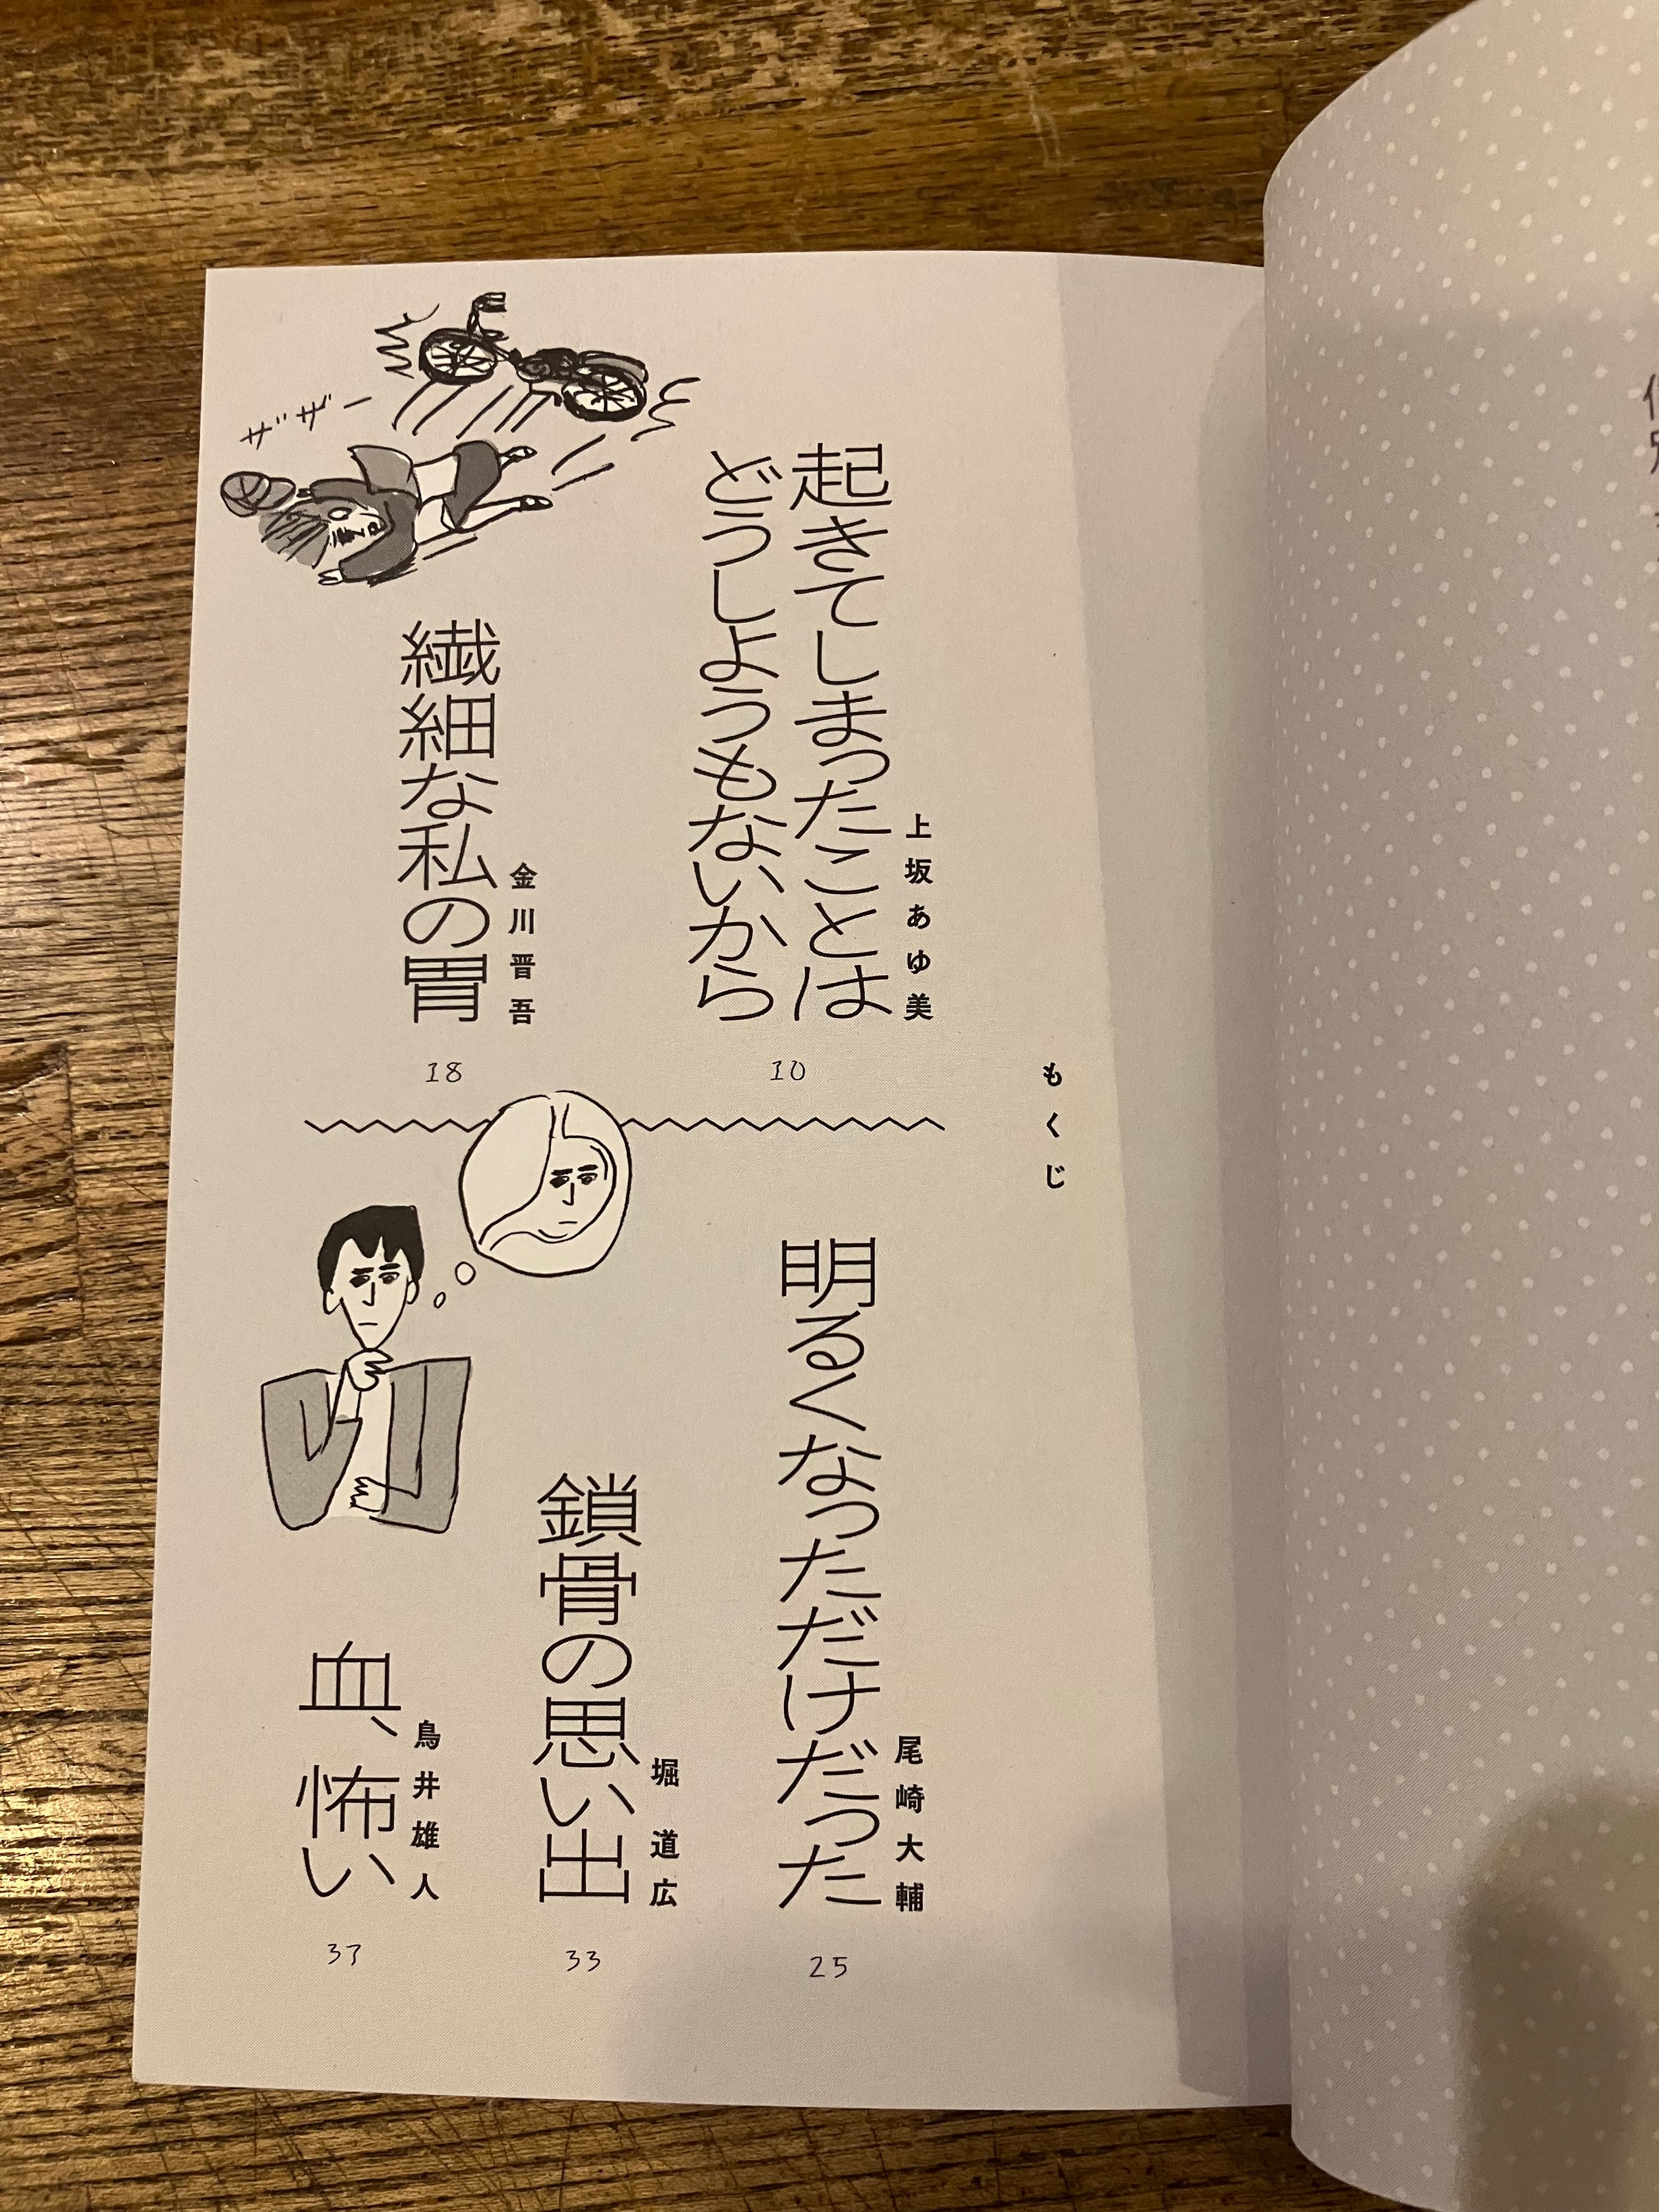 もくじ
上坂あゆ美
起きてしまったことは
どうしようもないから
10
金川晋吾
繊細な私の胃
18
ザザー
尾崎大輔
明るくなっただけだった
25
堀道広
鎖骨の思い出
33
鳥井雄人
血、怖い
37